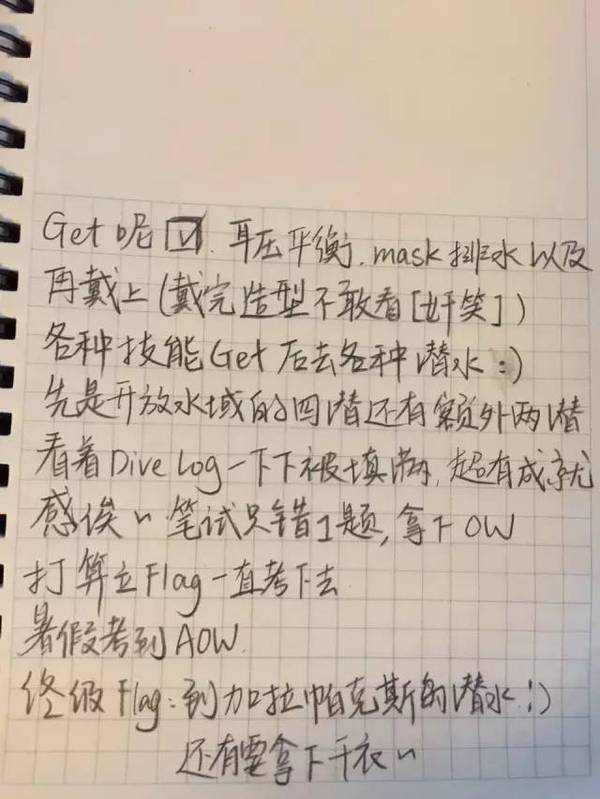 Get呢☑. 耳压平衡. mask排水以及
再戴上(戴完造型不敢看[奸笑])
各种技能Get后去各种潜水:)
先是开放水域的四潜还有额外两潜
看着Dive Log一下下被填满, 超有成就
感俟~ 笔试只错1题, 拿下OW
打算立Flag一直考下去
暑假考到AOW.
终级Flag:到加拉帕克斯的潜水:)
还有要拿下干衣~